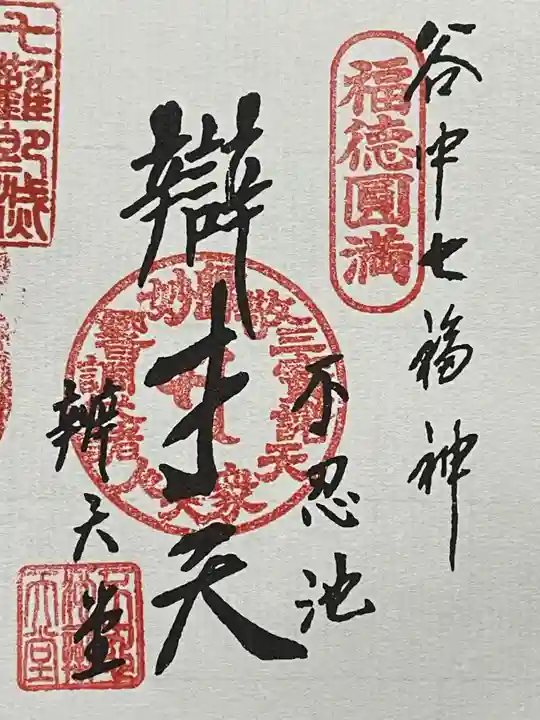 谷中七福神
福徳圓滿
不忍池
辯才天
辨天堂
七難即滅